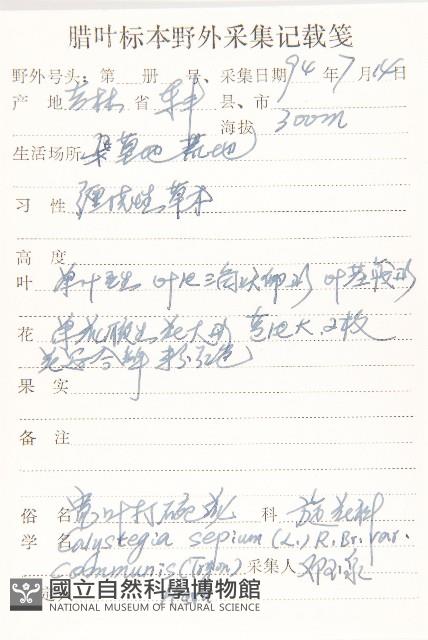 腊叶标本野外采集记载笺
野外号头：第 册 号、采集日期 94 年 7 月 14 日
产 地 吉林 省 县、市
海拔 300m
生活场所 草地 荒地
习 性 缠绕性草本
高 度
叶 单叶互生 叶片三角状卵形 叶基戟形
花 单花腋生 花大形 苞片大，2枚
花冠合瓣 粉红色
果 实
备 注
俗 名 宽叶打碗花 科 旋花科
学 名 Calystegia sepium (L.) R. Br. var.
communis (Tryon) 采集人
國立自然科學博物館
NATIONAL MUSEUM OF NATURAL SCIENCE